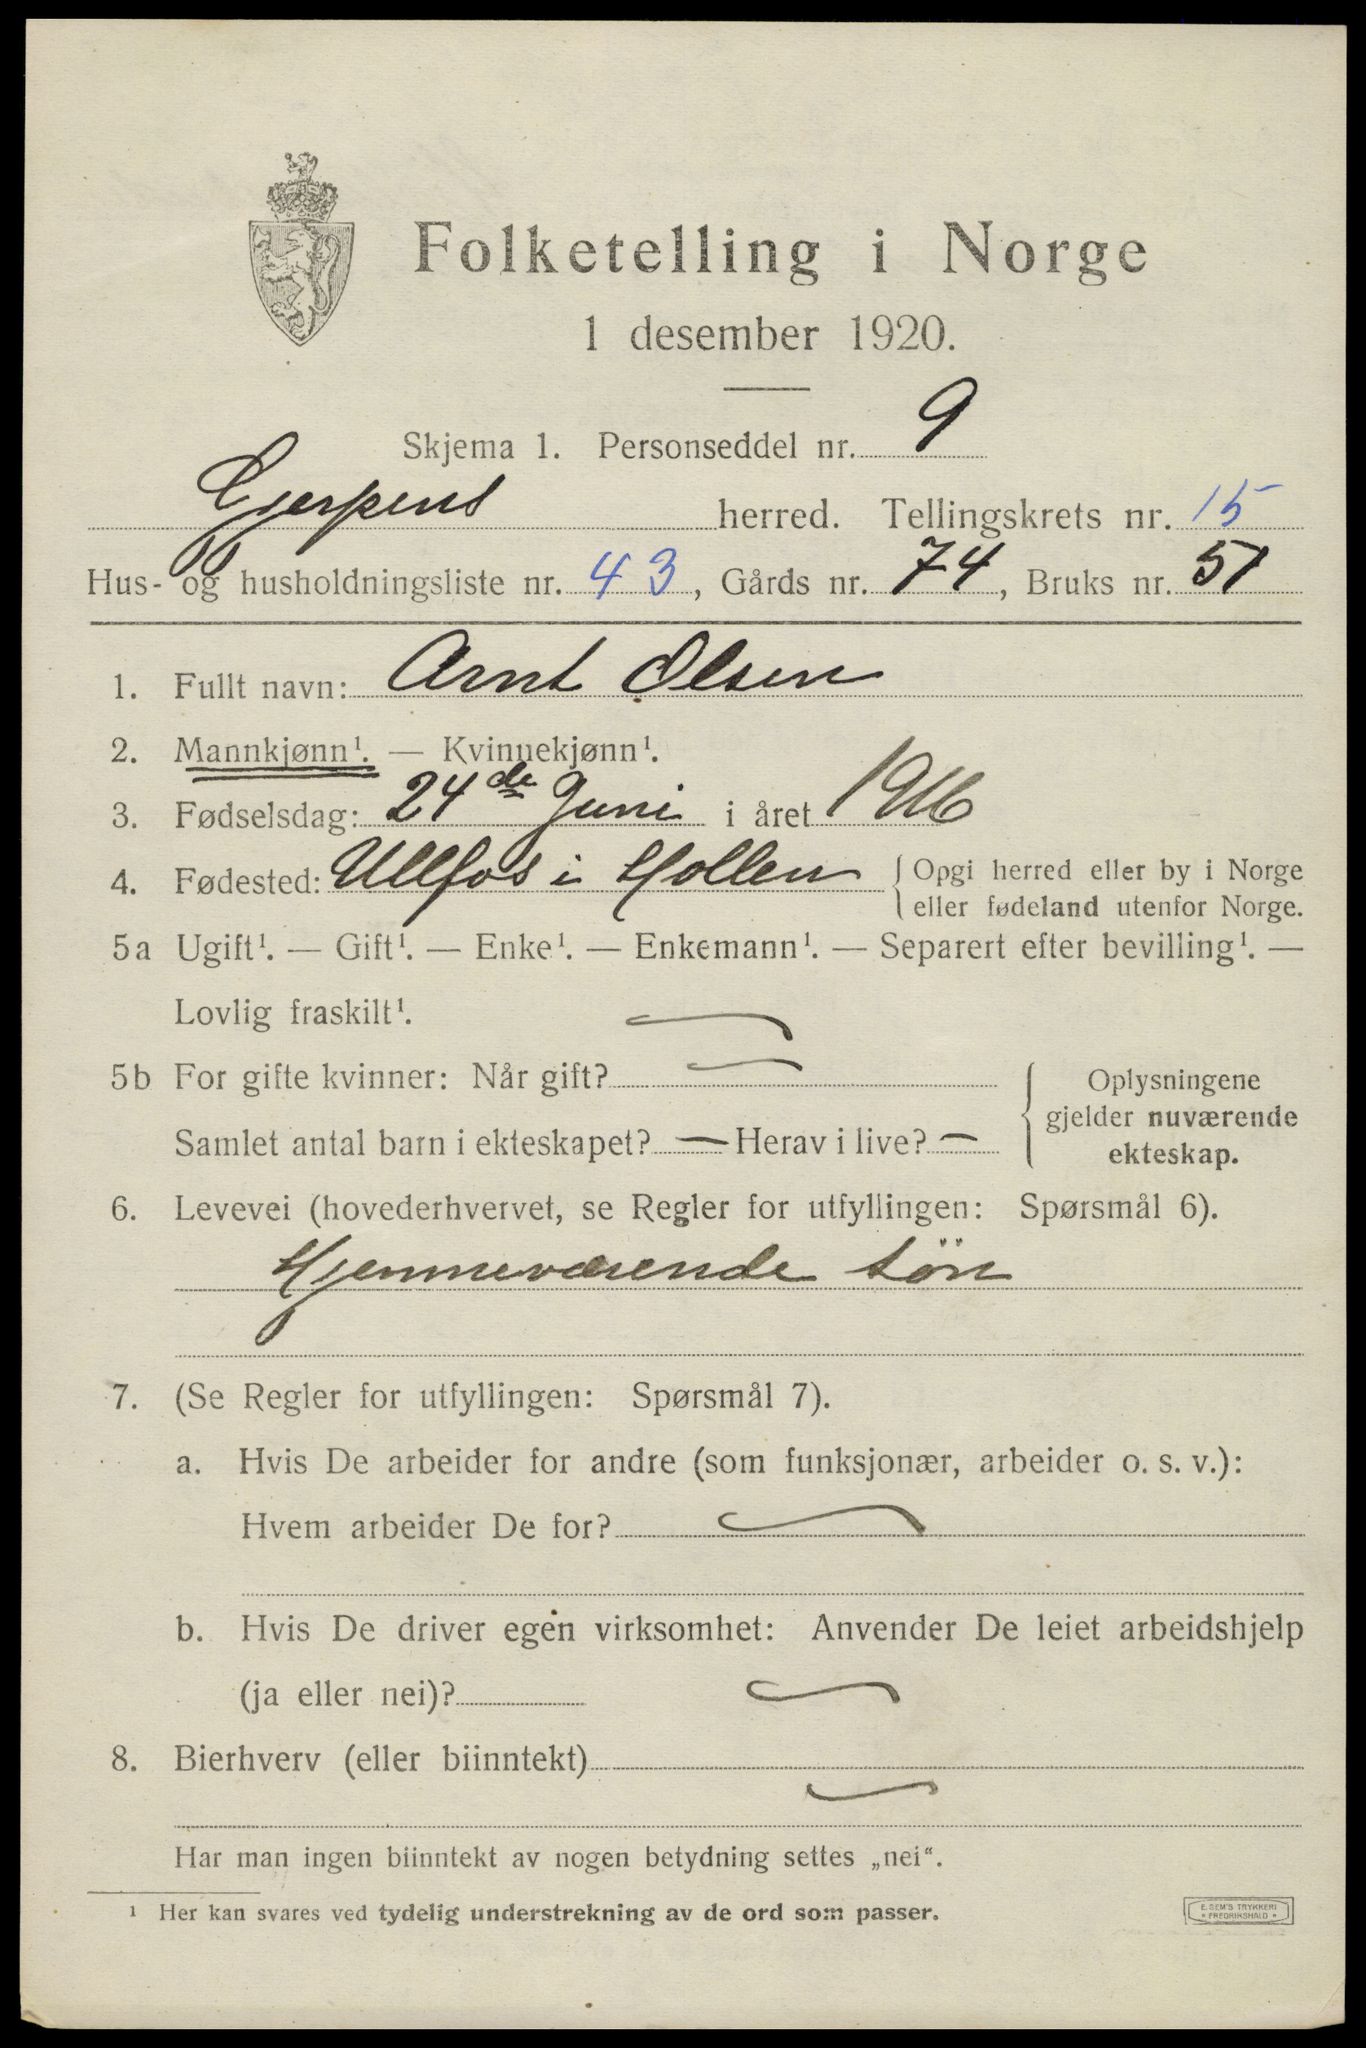 Folketelling i Norge
1 desember 1920.
Skjema 1. Personseddel nr. 9
Gjerpens herred. Tellingskrets nr. 15
Hus- og husholdningsliste nr. 43, Gårds nr. 74, Bruks nr. 51
1. Fullt navn: Arnt Olsen
2. Mannkjønn¹. — Kvinnekjønn¹.
3. Fødselsdag: 24de Juni i året 1916
4. Fødested: Ullfos i Hollen { Opgi herred eller by i Norge
eller fødeland utenfor Norge.
5a Ugift¹. — Gift¹. — Enke¹. — Enkemann¹. — Separert efter bevilling¹. —
Lovlig fraskilt¹. —
5b For gifte kvinner: Når gift? — { Oplysningene
gjelder nuværende
ekteskap.
Samlet antal barn i ekteskapet? — Herav i live? —
6. Levevei (hovederhvervet, se Regler for utfyllingen: Spørsmål 6).
Hjemmeværende sön
7. (Se Regler for utfyllingen: Spørsmål 7).
a. Hvis De arbeider for andre (som funksjonær, arbeider o. s. v.):
Hvem arbeider De for? —
b. Hvis De driver egen virksomhet: Anvender De leiet arbeidshjelp
(ja eller nei)? —
8. Bierhverv (eller biinntekt)
—
Har man ingen biinntekt av nogen betydning settes „nei“.
¹ Her kan svares ved tydelig understrekning av de ord som passer.
E. SEM'S TRYKKERI
* FREDRIKSHALD *